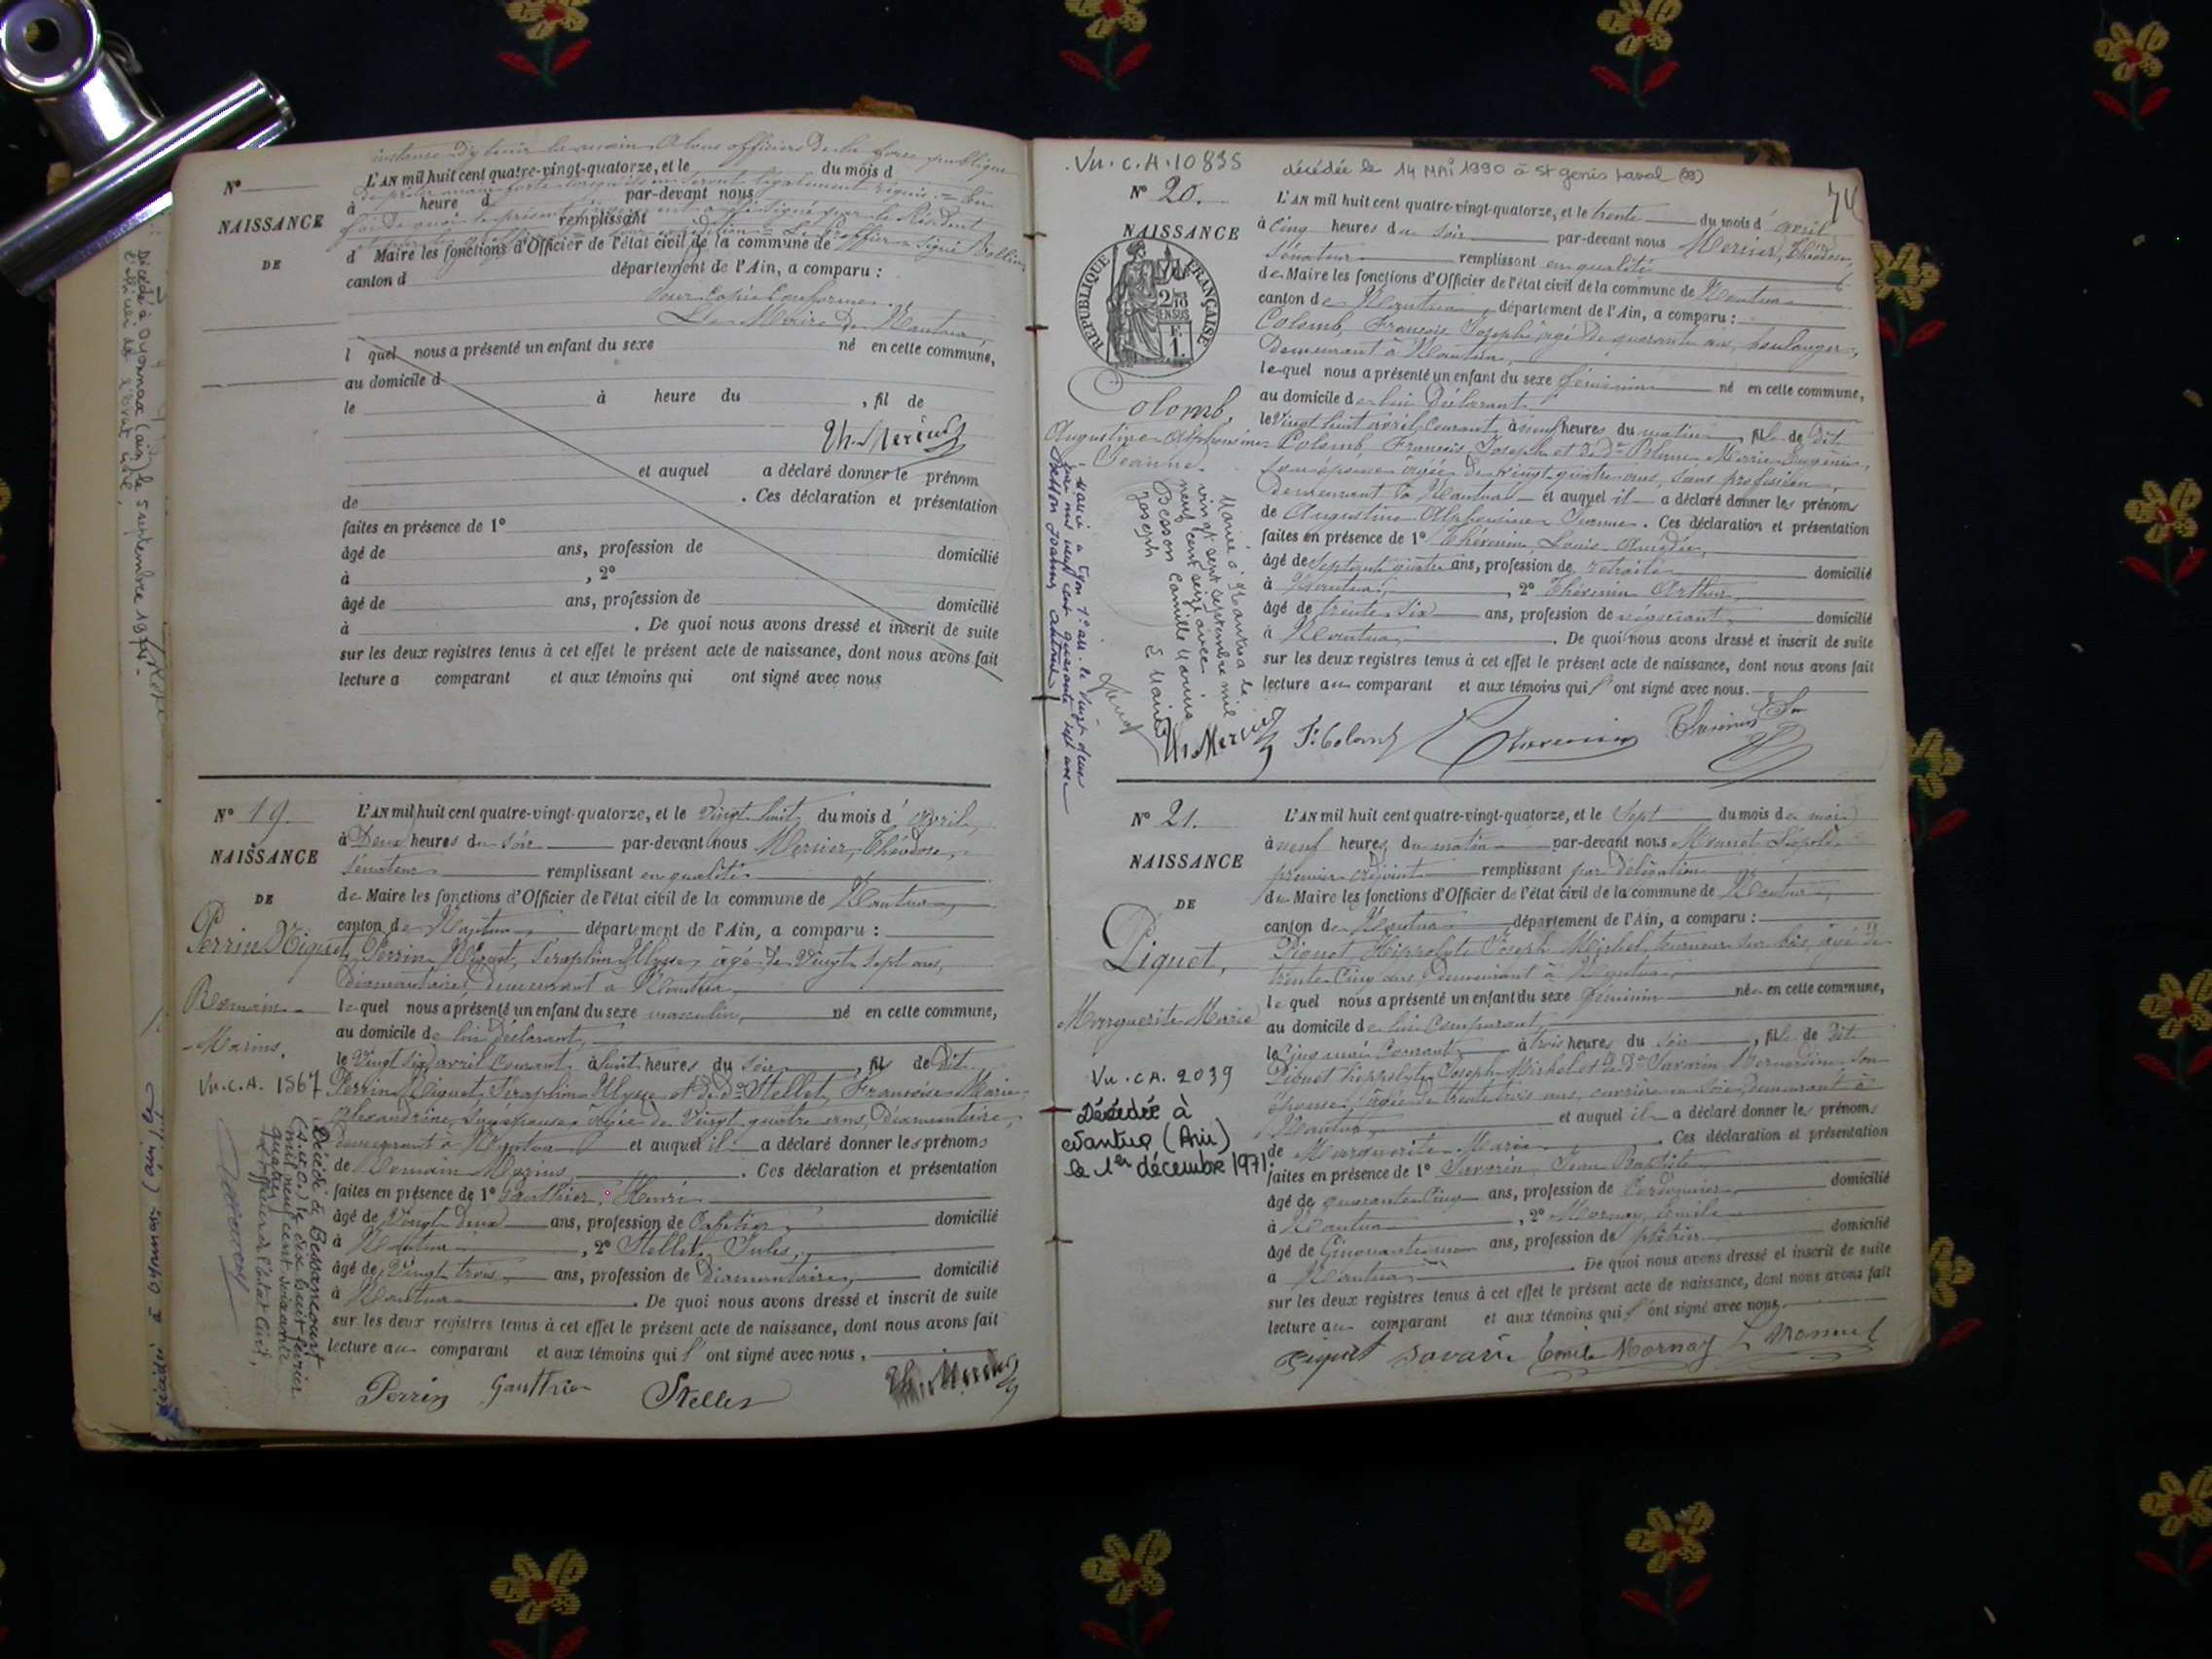 instance d'y tenir la main. A tous officiers de la force publique
N°
L'AN mil huit cent quatre-vingt-quatorze, et le du mois d
NAISSANCE
à heure d par-devant nous
remplissant
DE
d Maire les fonctions d'Officier de l'état civil de la commune de
canton d département de l'Ain, a comparu :
Pour copie conforme.
Le Maire de Nantua,
l quel nous a présenté un enfant du sexe né en cette commune,
au domicile d
le à heure du , fil de
Th. Mercier
et auquel a déclaré donner le prénom
de . Ces déclaration et présentation
faites en présence de 1°
âgé de ans, profession de domicilié
à , 2°
âgé de ans, profession de domicilié
à . De quoi nous avons dressé et inscrit de suite
sur les deux registres tenus à cet effet le présent acte de naissance, dont nous avons fait
lecture a comparant et aux témoins qui ont signé avec nous
Décédé à Oyonnax (ain) le 5 septembre 1974.
N° 19.
NAISSANCE
DE
Perrin Niquet,
Romain
Marius.
Vu. C.A. 1567
Décédé à Bessancourt
(S. et O.) le dix huit février
mil neuf cent soixante
quatre
L'officier de l'état civil,
L'AN mil huit cent quatre-vingt-quatorze, et le vingt huit du mois d'avril,
à Deux heures du soir par-devant nous Mercier, Théodore,
sénateur remplissant en qualité
de Maire les fonctions d'Officier de l'état civil de la commune de Nantua,
canton de Nantua, département de l'Ain, a comparu :
Perrin Niquet, Séraphin Ulysse, âgé de vingt sept ans,
diamantaire, demeurant à Nantua
lequel nous a présenté un enfant du sexe masculin, né en cette commune,
au domicile de lui déclarant,
le vingt six avril courant, à huit heures du soir, fils de dit
Perrin Niquet, Séraphin Ulysse et de De Stellet, Françoise Marie
Alexandrine, son épouse, âgée de vingt quatre ans, diamantaire,
demeurant à Nantua et auquel il a déclaré donner les prénoms
de Romain Marius . Ces déclaration et présentation
faites en présence de 1° Gauthier, Henri
âgé de vingt deux ans, profession de Cafetier, domicilié
à Nantua , 2° Stellet, Jules,
âgé de vingt trois ans, profession de diamantaire, domicilié
à Nantua . De quoi nous avons dressé et inscrit de suite
sur les deux registres tenus à cet effet le présent acte de naissance, dont nous avons fait
lecture au comparant et aux témoins qui l'ont signé avec nous.
Perrin Gauthier Stellet Th. Mercier
Vu. C.A. 10835
décédée le 14 MAI 1990 à St Genis Laval (69)
74
N° 20.
NAISSANCE
REPUBLIQUE FRANÇAISE
Colomb,
Augustine Alphonsine
Jeanne.
Mariée à Nantua le
vingt sept septembre mil
neuf cent seize avec
Besson Camille Marius
Joseph
L'AN mil huit cent quatre-vingt-quatorze, et le trente du mois d'avril
à cinq heures du soir par-devant nous Mercier, Théodore,
sénateur remplissant en qualité
de Maire les fonctions d'Officier de l'état civil de la commune de Nantua
canton de Nantua, département de l'Ain, a comparu :
Colomb, François Joseph âgé de quarante ans, boulanger,
demeurant à Nantua,
lequel nous a présenté un enfant du sexe féminin né en cette commune,
au domicile de lui déclarant
le vingt huit avril courant, à neuf heures du matin, fille de dit
Colomb, François Joseph et de De Marie Eugénie,
son épouse âgée de vingt quatre ans, sans profession,
demeurant à Nantua et auquel il a déclaré donner les prénoms
de Augustine Alphonsine Jeanne. Ces déclaration et présentation
faites en présence de 1° Thévenin, Louis Amédée,
âgé de septante quatre ans, profession de retraité domicilié
à Nantua, , 2° Thévenin Arthur,
âgé de trente six ans, profession de négociant, domicilié
à Nantua, . De quoi nous avons dressé et inscrit de suite
sur les deux registres tenus à cet effet le présent acte de naissance, dont nous avons fait
lecture au comparant et aux témoins qui l'ont signé avec nous.
Th. Mercier F. Colomb Thévenin
N° 21.
NAISSANCE
DE
Piquet,
Marguerite Marie
Vu. C.A. 2039
Décédée à
Nantua (Ain)
le 1er décembre 1971.
L'AN mil huit cent quatre-vingt-quatorze, et le sept du mois de mai
à neuf heures du matin par-devant nous Monnet Léopold
premier adjoint remplissant par délégation
du Maire les fonctions d'Officier de l'état civil de la commune de Nantua,
canton de Nantua département de l'Ain, a comparu :
Piquet, Hippolyte Joseph Michel, tourneur sur bois, âgé de
trente cinq ans, demeurant à Nantua,
lequel nous a présenté un enfant du sexe féminin née en cette commune,
au domicile de lui comparant
le cinq mai courant, à trois heures du soir, fille de dit
Piquet Hippolyte Joseph Michel et de De Savarin Bernardine son
épouse âgée de trente trois ans, ouvrière en soie, demeurant à
Nantua, et auquel il a déclaré donner les prénoms
de Marguerite Marie . Ces déclaration et présentation
faites en présence de 1° Savarin, Jean Baptiste
âgé de quarante cinq ans, profession de Cordonnier, domicilié
à Nantua , 2° Mornay, Emile
âgé de Cinquante un ans, profession de plâtrier domicilié
à Nantua, . De quoi nous avons dressé et inscrit de suite
sur les deux registres tenus à cet effet le présent acte de naissance, dont nous avons fait
lecture au comparant et aux témoins qui l'ont signé avec nous.
Piquet Savarin Emile Mornay L. Monnet